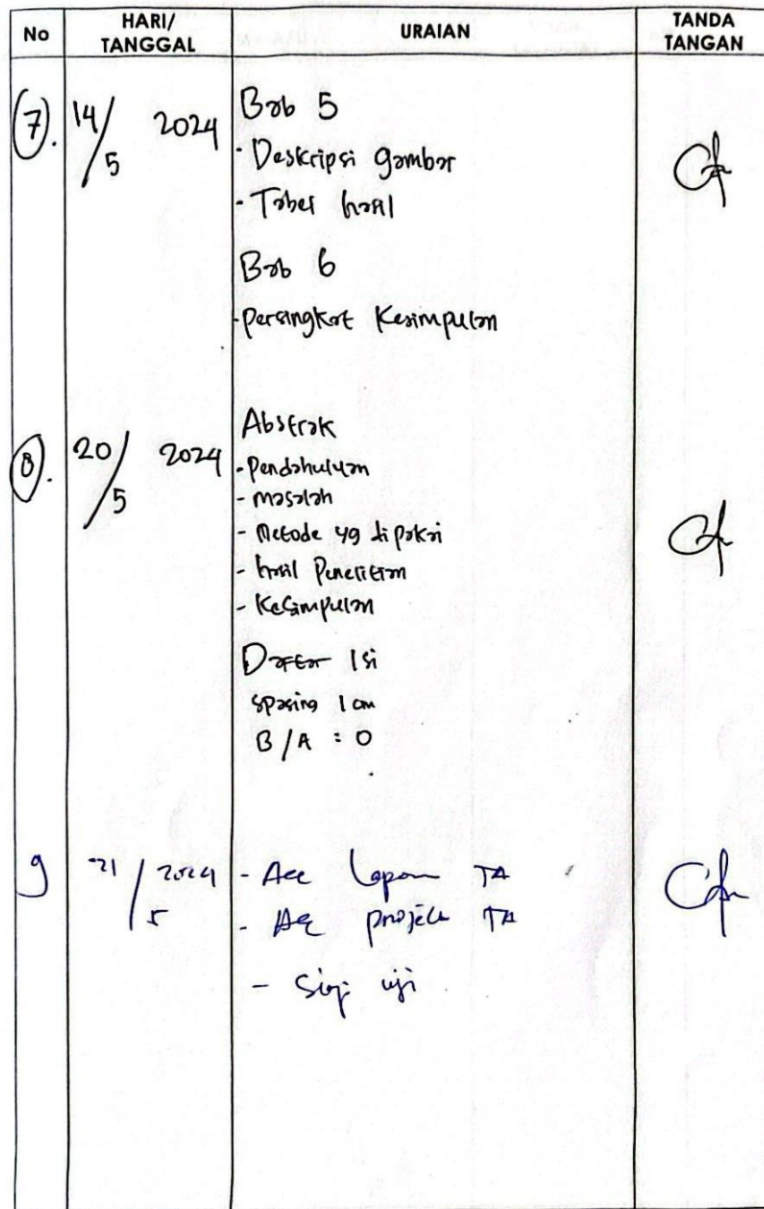 No HARI/ TANGGAL URAIAN TANDA TANGAN
7. 14/5 2024 Bab 5
- Deskripsi gambar
- Tabel hasil
Bab 6
- Persingkat Kesimpulan
8. 20/5 2024 Abstrak
- Pendahuluan
- masalah
- Metode yg dipakai
- hasil Penelitian
- Kesimpulan
Daftar Isi
spasing 1 cm
B/A : 0
9 21/5 2024 - Acc Lapom TA
- Acc projek TA
- Siap uji